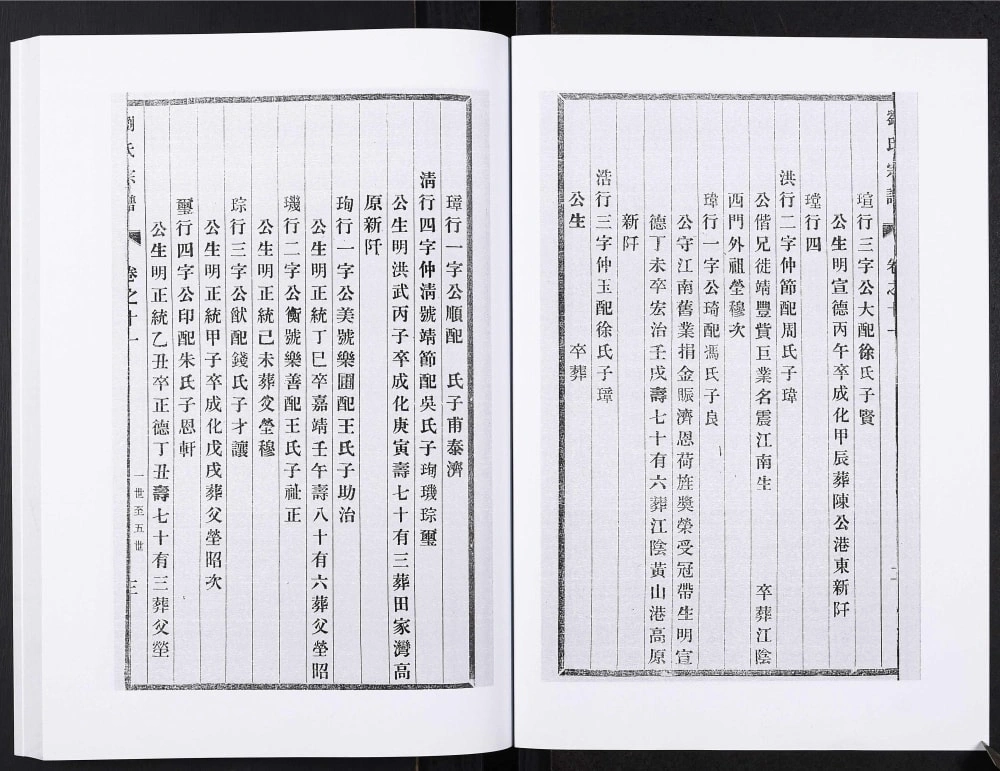 劉氏宗譜
卷之十一
二
瑄行三字公大配徐氏子賢
公生明宣德丙午卒成化甲辰葬陳公港東新阡
瑝行四
洪行二字仲節配周氏子瑋
公偕兄徙靖豐貲巨業名震江南生 卒葬江陰
西門外祖塋穆次
瑋行一字公琦配馮氏子良
公守江南舊業捐金賑濟恩荷旌獎榮受冠帶生明宣
德丁未卒宏治壬戌壽七十有六葬江陰黃山港高原
新阡
浩行三字仲玉配徐氏子璋
公生 卒葬
璋行一字公順配 氏子甫泰濟
清行四字仲清號靖節配吳氏子珣璣琮璽
公生明洪武丙子卒成化庚寅壽七十有三葬田家灣高
原新阡
珣行一字公美號樂圃配王氏子助治
公生明正統丁巳卒嘉靖壬午壽八十有六葬父塋昭
璣行二字公衡號樂善配王氏子祉正
公生明正統己未葬父塋穆
琮行三字公猷配錢氏子才讓
公生明正統甲子卒成化戊戌葬父塋昭次
璽行四字公印配朱氏子恩軒
公生明正統乙丑卒正德丁丑壽七十有三葬父塋
劉氏宗譜
卷之十一
一世至五世
三